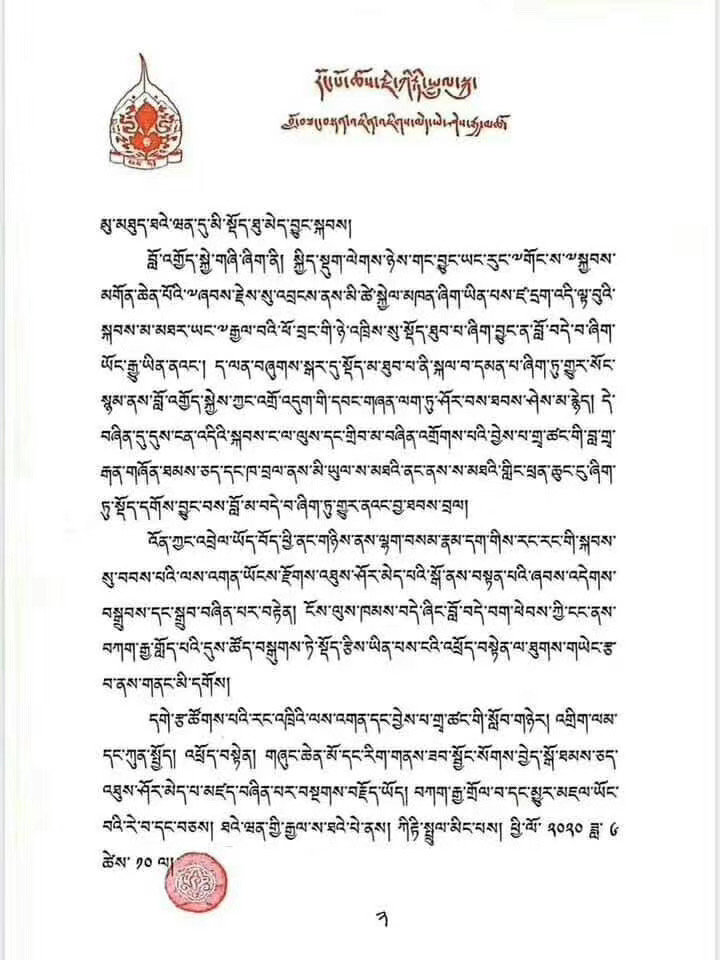 མུ་མཐུད་ཐའེ་ཝན་དུ་མི་སྡོད་ཐུ་མེད་བྱུང་སྐབས།
བློ་འགྱོད་སྐྱེ་གཞི་ཞིག་ནི། སྐྱིད་སྡུག་ལེགས་ཉེས་གང་བྱུང་ཡང་རུང་༸གོང་ས་༸སྐྱབས་
མགོན་ཆེན་པོའི་༸ཞབས་རྗེས་སུ་འབྲངས་ནས་མི་ཚེ་སྐྱེལ་མཁན་ཞིག་ཡིན་པས་ཛ་དྲག་འདི་ལྟ་བུའི་
སྐབས་མ་མཐར་ཡང་༸རྒྱལ་བའི་ཕོ་བྲང་གི་ཉེ་འཁྲིས་སུ་སྡོད་ཐུབ་པ་ཞིག་བྱུང་ན་བློ་བདེ་བ་ཞིག་
ཡོང་རྒྱུ་ཡིན་ནའང་། ད་ལན་བཞུགས་སྒར་དུ་སྡོད་མ་ཐུབ་པ་ནི་སྐལ་བ་དམན་པ་ཞིག་ཏུ་གྱུར་སོང་
སྙམ་ནས་བློ་འགྱོད་སྐྱེས་ཀྱང་འགྲོ་འདུག་གི་དབང་གཞན་ལག་ཏུ་ཤོར་བས་ཐབས་ཤེས་མ་རྙེད། དེ་
བཞིན་དུ་དུས་ངན་འདིའི་སྐབས་ང་ལ་ལུས་དང་གྲིབ་མ་བཞིན་འགྲོགས་པའི་བྱེས་པ་གྲྭ་ཚང་གི་བླ་གྲྭ་
རྒན་གཞོན་ཐམས་ཅད་དང་ཁ་བྲལ་ནས་མི་ཡུལ་ས་མཐའི་ནང་ནས་ས་མཐའི་གླིང་ཕྲན་ཆུང་ངུ་ཞིག་
ཏུ་སྡོད་དགོས་བྱུང་བས་བློ་མ་བདེ་བ་ཞིག་ཏུ་གྱུར་ནའང་བྱ་ཐབས་བྲལ།
འོན་ཀྱང་འབྲེལ་ཡོད་བོད་ཕྱི་ནང་གཉིས་ནས་ལྷག་བསམ་རྣམ་དག་གིས་རང་རང་གི་སྐབས་
སུ་བབས་པའི་ལས་འགན་ཡོངས་རྫོགས་འཐུས་ཤོར་མེད་པའི་སྒོ་ནས་བསྟན་པའི་ཞབས་འདེགས་
བསྒྲུབས་དང་སྒྲུབ་བཞིན་པར་བརྟེན། ངོས་ལུས་ཁམས་བདེ་ཞིང་བློ་བདེ་བག་ཕེབས་ཀྱི་ངང་ནས་
བཀག་རྒྱ་གློད་པའི་དུས་ཚོད་བསྒུགས་ཏེ་སྡོད་རྩིས་ཡིན་པས་ངའི་འཕྲོད་བསྟེན་ལ་ཐུགས་གཡེང་རྩ་
བ་ནས་གནང་མི་དགོས།
དགེ་རྩ་ཚོགས་པའི་རང་འཁྲིའི་ལས་འགན་དང་བྱེས་པ་གྲྭ་ཚང་གི་སློབ་གཉེར། འགྲིག་ལམ་
དང་ཀུན་སྤྱོད། འཕྲོད་བསྟེན། གཞུང་ཆེན་མོ་དང་རིག་གནས་ཟབ་སྦྱོང་སོགས་བྱེད་སྒོ་ཐམས་ཅད་
འཐུས་ཤོར་མེད་པ་མཛད་བཞིན་པར་བསྔགས་བརྗོད་ཡོད། བཀག་རྒྱ་གྲོལ་བ་དང་མྱུར་མཇལ་ཡོང་
བའི་རེ་བ་དང་བཅས། ཐའེ་ཝན་གྱི་རྒྱལ་ས་ཐའེ་པེ་ནས། ཀིརྟི་སྤྲུལ་མིང་པས། ཕྱི་ལོ་ ༢༠༢༠ ཟླ་ ༦
ཚེས་ ༡༠ ལ།
༣